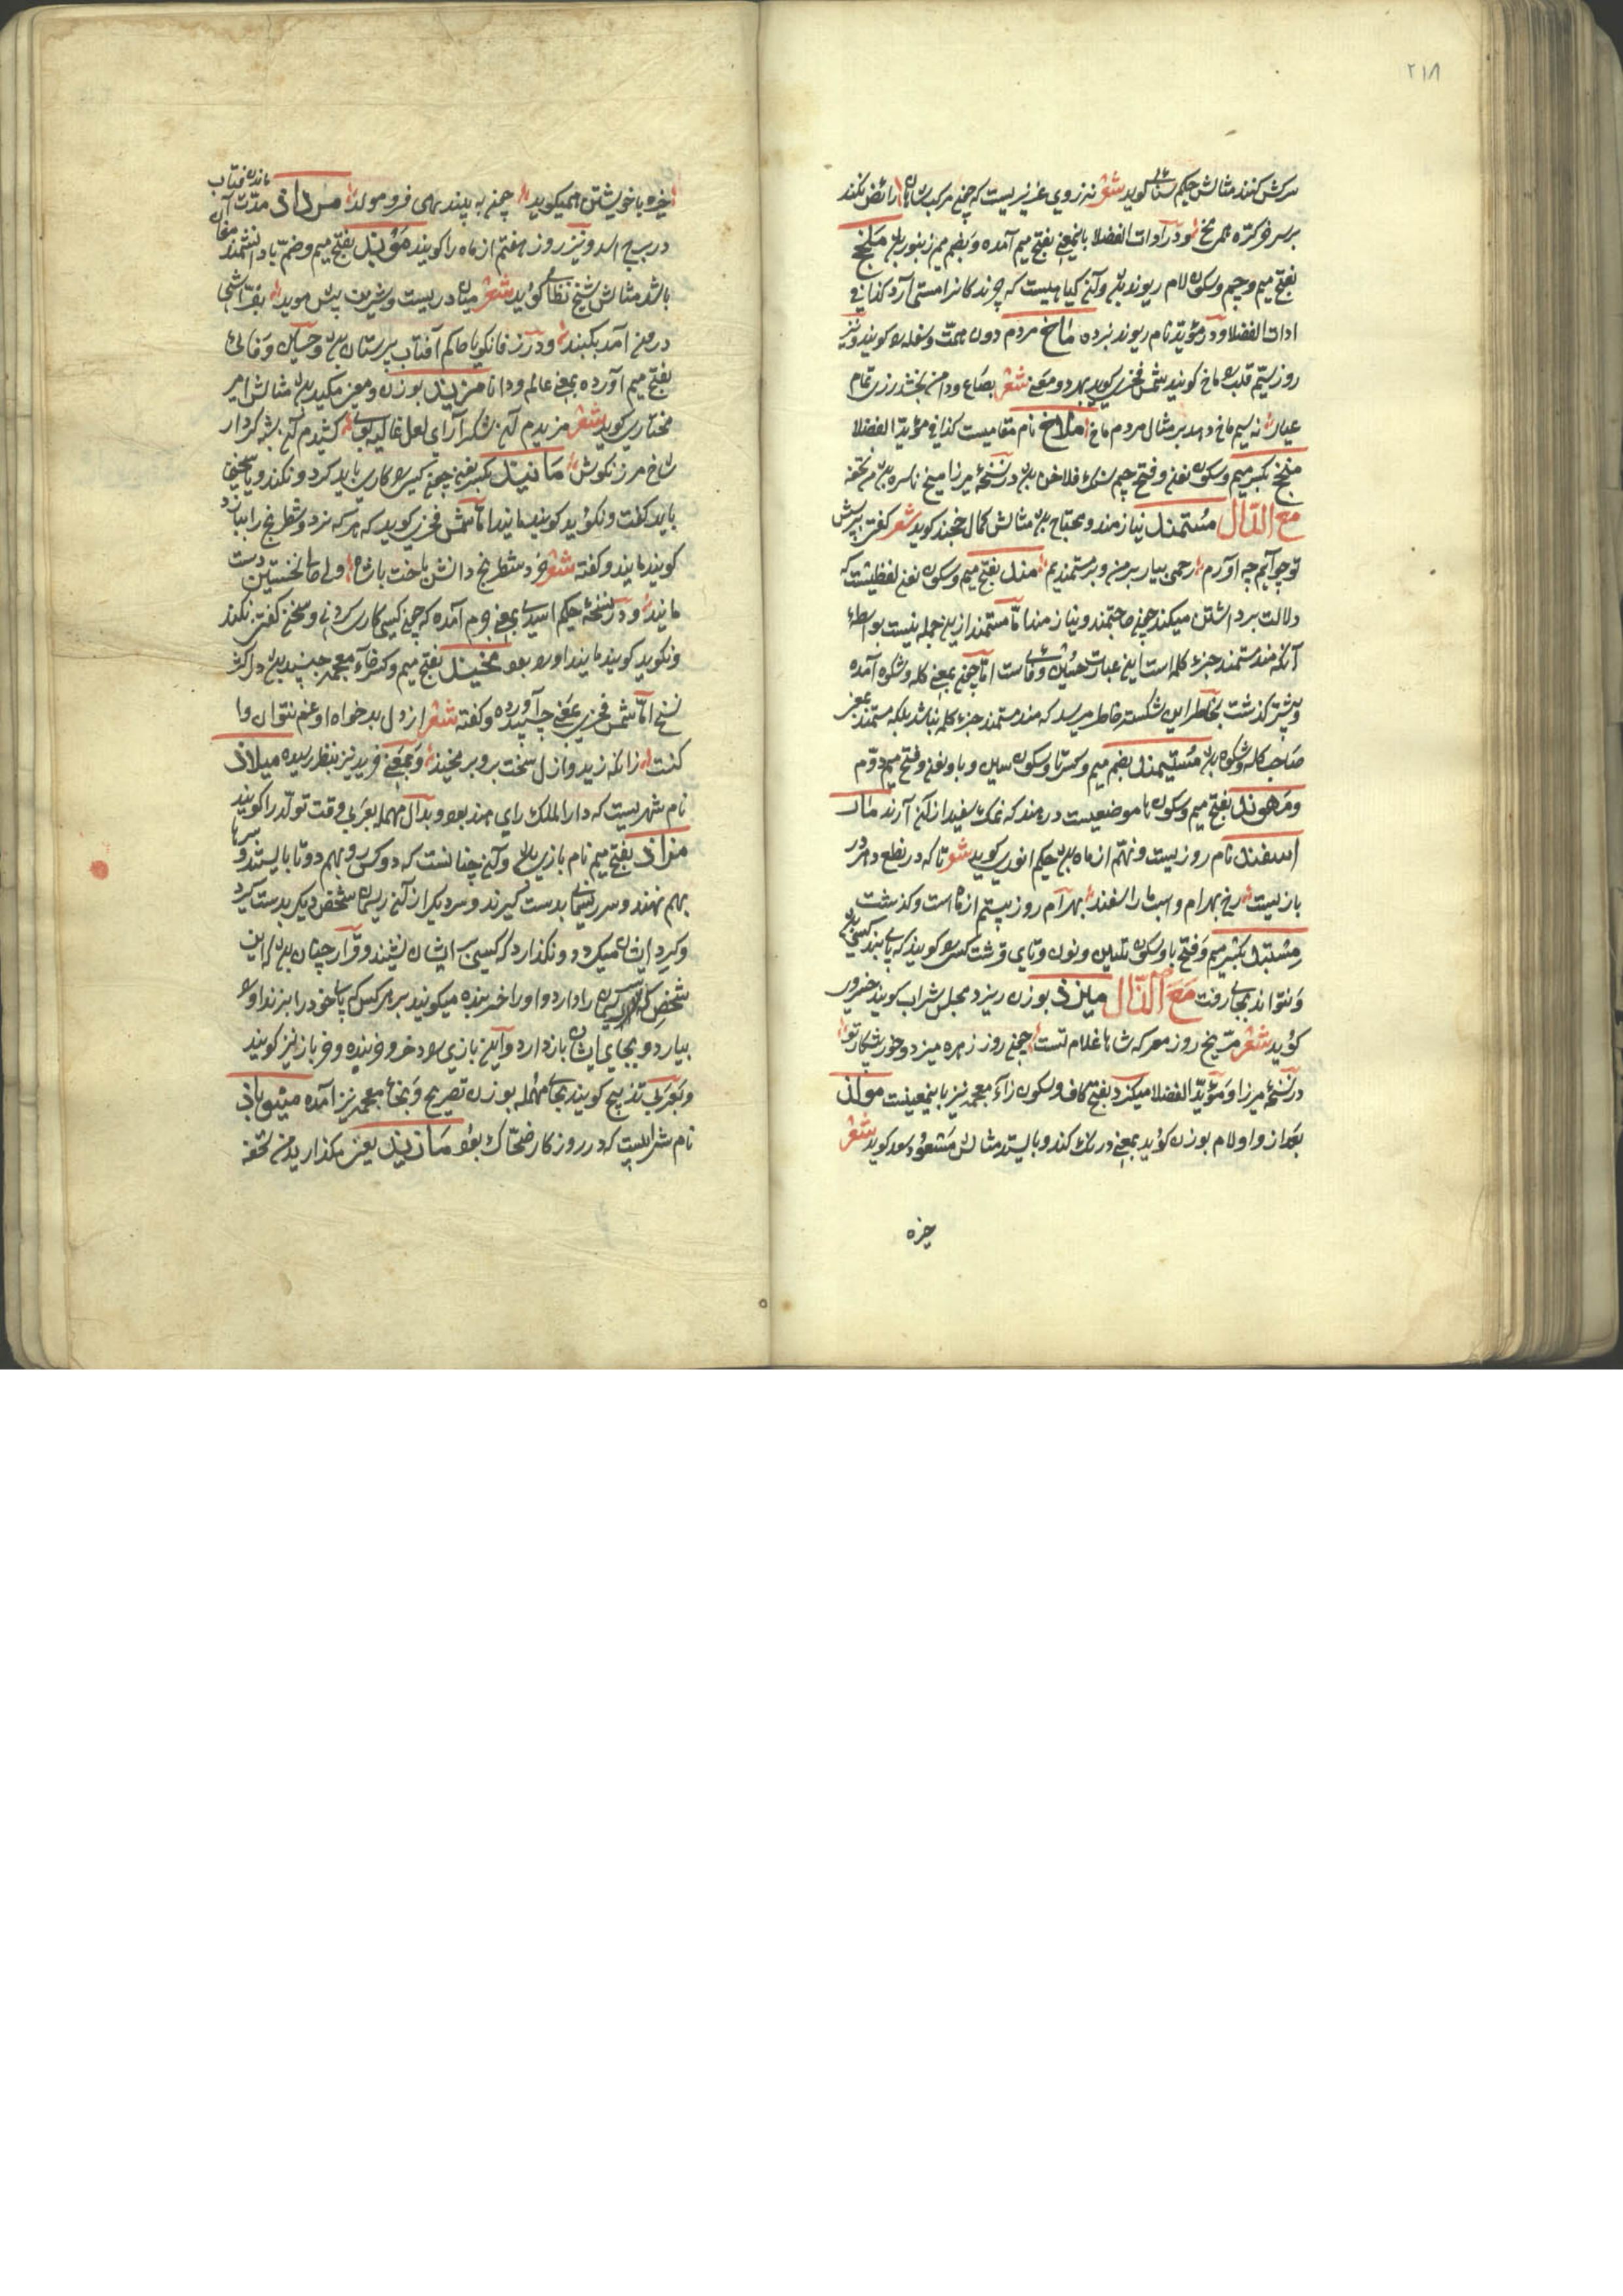 ۲۱۸
سرکش کنند مثالش حکیم سنائی کوید شعر نه زروی عزیزیست که چنخ مرکب شاهان را رائض نکند
برسر خر کره ملخ و در آدات الفضلا باینمعنی بفتح میم آمده و بضم میم زنبور ملنج
بفتح میم وجیم وسکون لام ریوند و آن کیاهیست که چرند کانرا مستی آرد کذا فی
ادات الفضلا و در مؤید نام ریوند نبرده ماخ مردم دون همت وسفله را کویند و نیز
روز سیم قلب را ماخ کویند شمس فخری کوید بهر دو معنی شعر بصاع ودامن بخشد زر تمام
عیار نه سیم ماخ دهد بر مثال مردم ماخ ملاخ نام مقامیست کذا فی مؤید الفضلا
منجخ بکسر میم وسکون نون وفتح جیم سنک فلاخن در نسخۀ میرزا میخ ناسره من تحفه
مع الدال مستمند نیازمند و محتاج مثالش کمال خجند کوید شعر کفتی بپرسش
تو چو آیم چه آورم رحمی بیار بر من و بر مستمندیم مند بفتح میم وسکون نون لفظیست که
دلالت برداشتن میکند چنی حاجتمند و نیازمند اما مستمند ازین جمله نیست بواسطۀ
آنکه مند مستمند جزء کلمه است این عبارت حسین وفائی است اما چنخ بمعنی کله و شکوه آمده
وپیشتر کذشت بخاطر این شکسته خاطر میرسد که مند مستمند جزء کلمه نباشد بلکه مستمند بمعنی
صاحب کله وشکوه مستیمند بضم میم وکسر تا وسکون سین و یا ونون وفتح میم دوم
ومرهوند بفتح میم وسکون ها موضعیست در هند که نمک سفید از آن آرند مار
اسفند نام روز بیست ونهم از ماه حکیم انوری کوید شعر تا که در نطع دهر در
بازیست رخ بهرام واسب را اسفند بهرآم روز بیستم از ماه است و کذشت
مشتبد بکسر میم وفتح با وسکون شین ونون وتای قرشت کسی را کویند که پای بند کسی
ونتواند بجای رفت مع الذال میزد بوزن ریزد مجلس شراب کویند خسروی
کوید شعر مریخ روز معرکه شاها غلام تست چنخ روز زهره میزد و خورشکار تو
در نسخۀ میرزا و مؤید الفضلا میکزد بفتح کاف وسکون زآء معجمه نیز باینمعنیست مولذ
بعد از واو لام بوزن کوید بمعنی درنک کند و بایستد مثالش مسعود سعد کوید شعر
خیره
خیره با خویشتن همیکوید چنخ به بیند همی فرو مولد مرداد مدت ماندن آفتاب
در برج اسد و نیز روز هفتم از ماه را کویند موبد بفتح میم وضم با دانشمند مغان
باشد مثالش شیخ نظامی کوید شعر میان دربست و شیرین پیش موبد بفراشی
درون آمد بکنبد و در زفانکویا حاکم آفتاب پرستان و حسین وفائی
بفتح میم آورده بمعنی عالم ودانا مزید بوزن ومعنی مکید مثالش امیر
مختاری کوید شعر مزیدم آن شکر آرای لعل غالیه بوی کشیدم آن شبه کردار
شاخ مرزنکوش مانید بکسر نون چنی کسی را کاری باید کرد و نکند ویا سخنی
باید کفت و نکوید کویند مانید اما شمس فخری کوید که هر که نرد و شطرنج را ببازد
کویند مانید و کفته شعر خرد شطرنج دانش باخت با شاه ولی حالی نخستین دست
مانید و در نسخۀ حکیم اسدی بمعنی جرم آمده که چنی کسی کاری کردنی و سخن کفتنی نکند
ونکوید کویند مانید او را بود مخید بفتح میم وکسر خاء معجمه جنبید در اکثر
نسخ اما شمس فخری بمعنی چسپید آورده و کفته شعر از دل بدخواه او غم نتوان وا
کفت زانکه زید و ازل سخت بروبر مخید و بمعنی خزید نیز بنظر رسیده میلاد
نام شهریست که دار الملک رای هند بود و بدال مهمله بعربی وقت تولد را کویند
مزاد بفتح میم نام بازی و آن چنانست که دو کس رو بهم دو تا بایستند و سرها
بهم نهند و سر ریسمانی بدست کیرند و سر دیکر از آن ریسمان شخص دیکر بدست کیرد
وکرد ایشان میکردد و نکذارد که کسی بر ایشان نشیند و قرار چنان که این
شخص که سر ریسمان را دارد و او را خربنده میکویند بر هر کس که پای خود را بزند او را
بیارد و بجای ایشان باز دارد و آین بازی را خر و خربنده و خربازی نیز کویند
وبعربی تذبیح کویند بحای مهمله بوزن تصریح و بخاء معجمه نیز آمده میثوباد
نام شرابیست که در روزکار ضحاک بود مانید یعنی مکذارید من تحفه